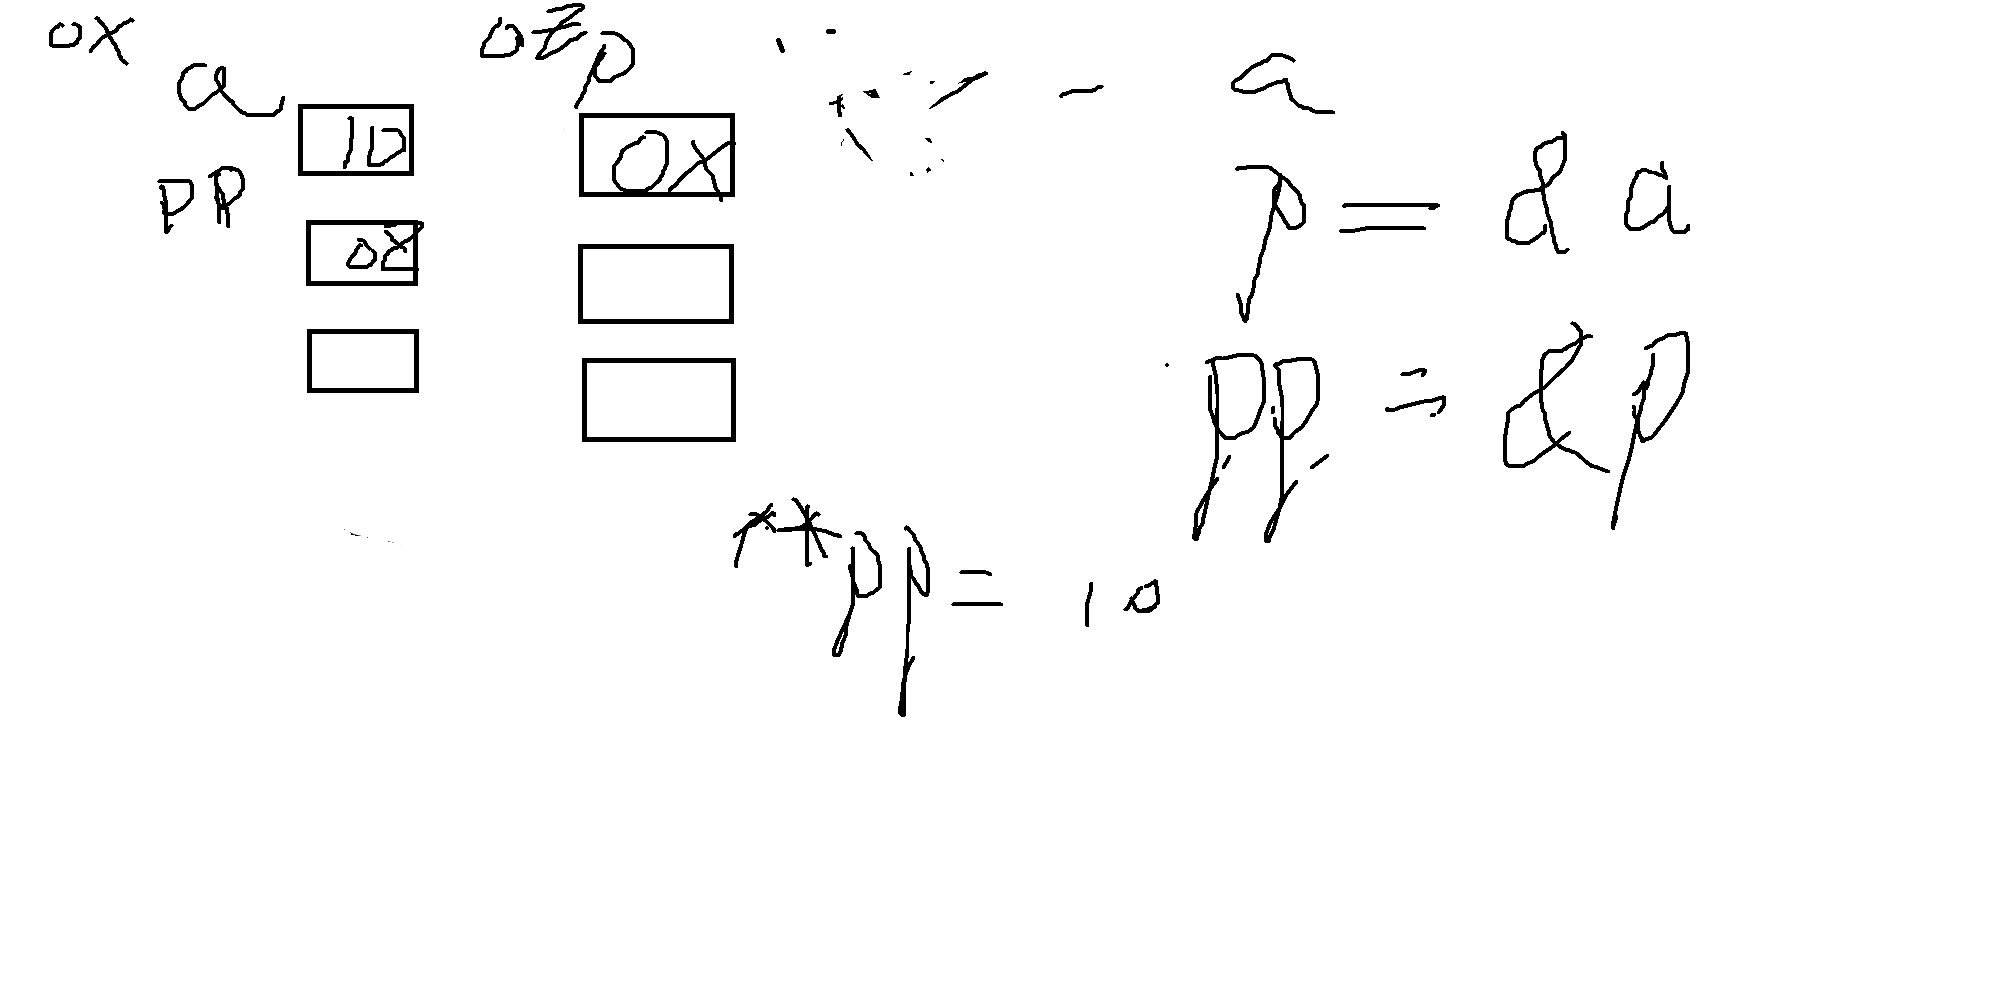 0x
a 10
pp 0z
0z p
0x
a
p = &a
pp = &p
**pp = 10